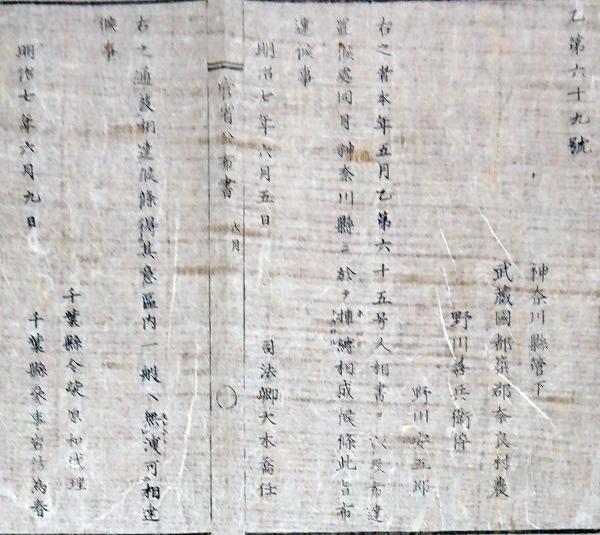 乙第六十九號
神奈川縣管下
武蔵國都筑郡奈良村農
野川喜兵衛倅
野川安五郎
右之者本年五月乙第六十五号人相書ヲ以及布達
置候處同月神奈川縣ニ於テ捕縛相成候條此旨布
達候事
明治七年六月五日
司法卿大木喬任
官省公布書 六月
右之通被相達候條得其意區内一般ヘ無洩可相達
候事
明治七年六月九日
千葉縣令柴原和代理
千葉縣參事岩佐為春